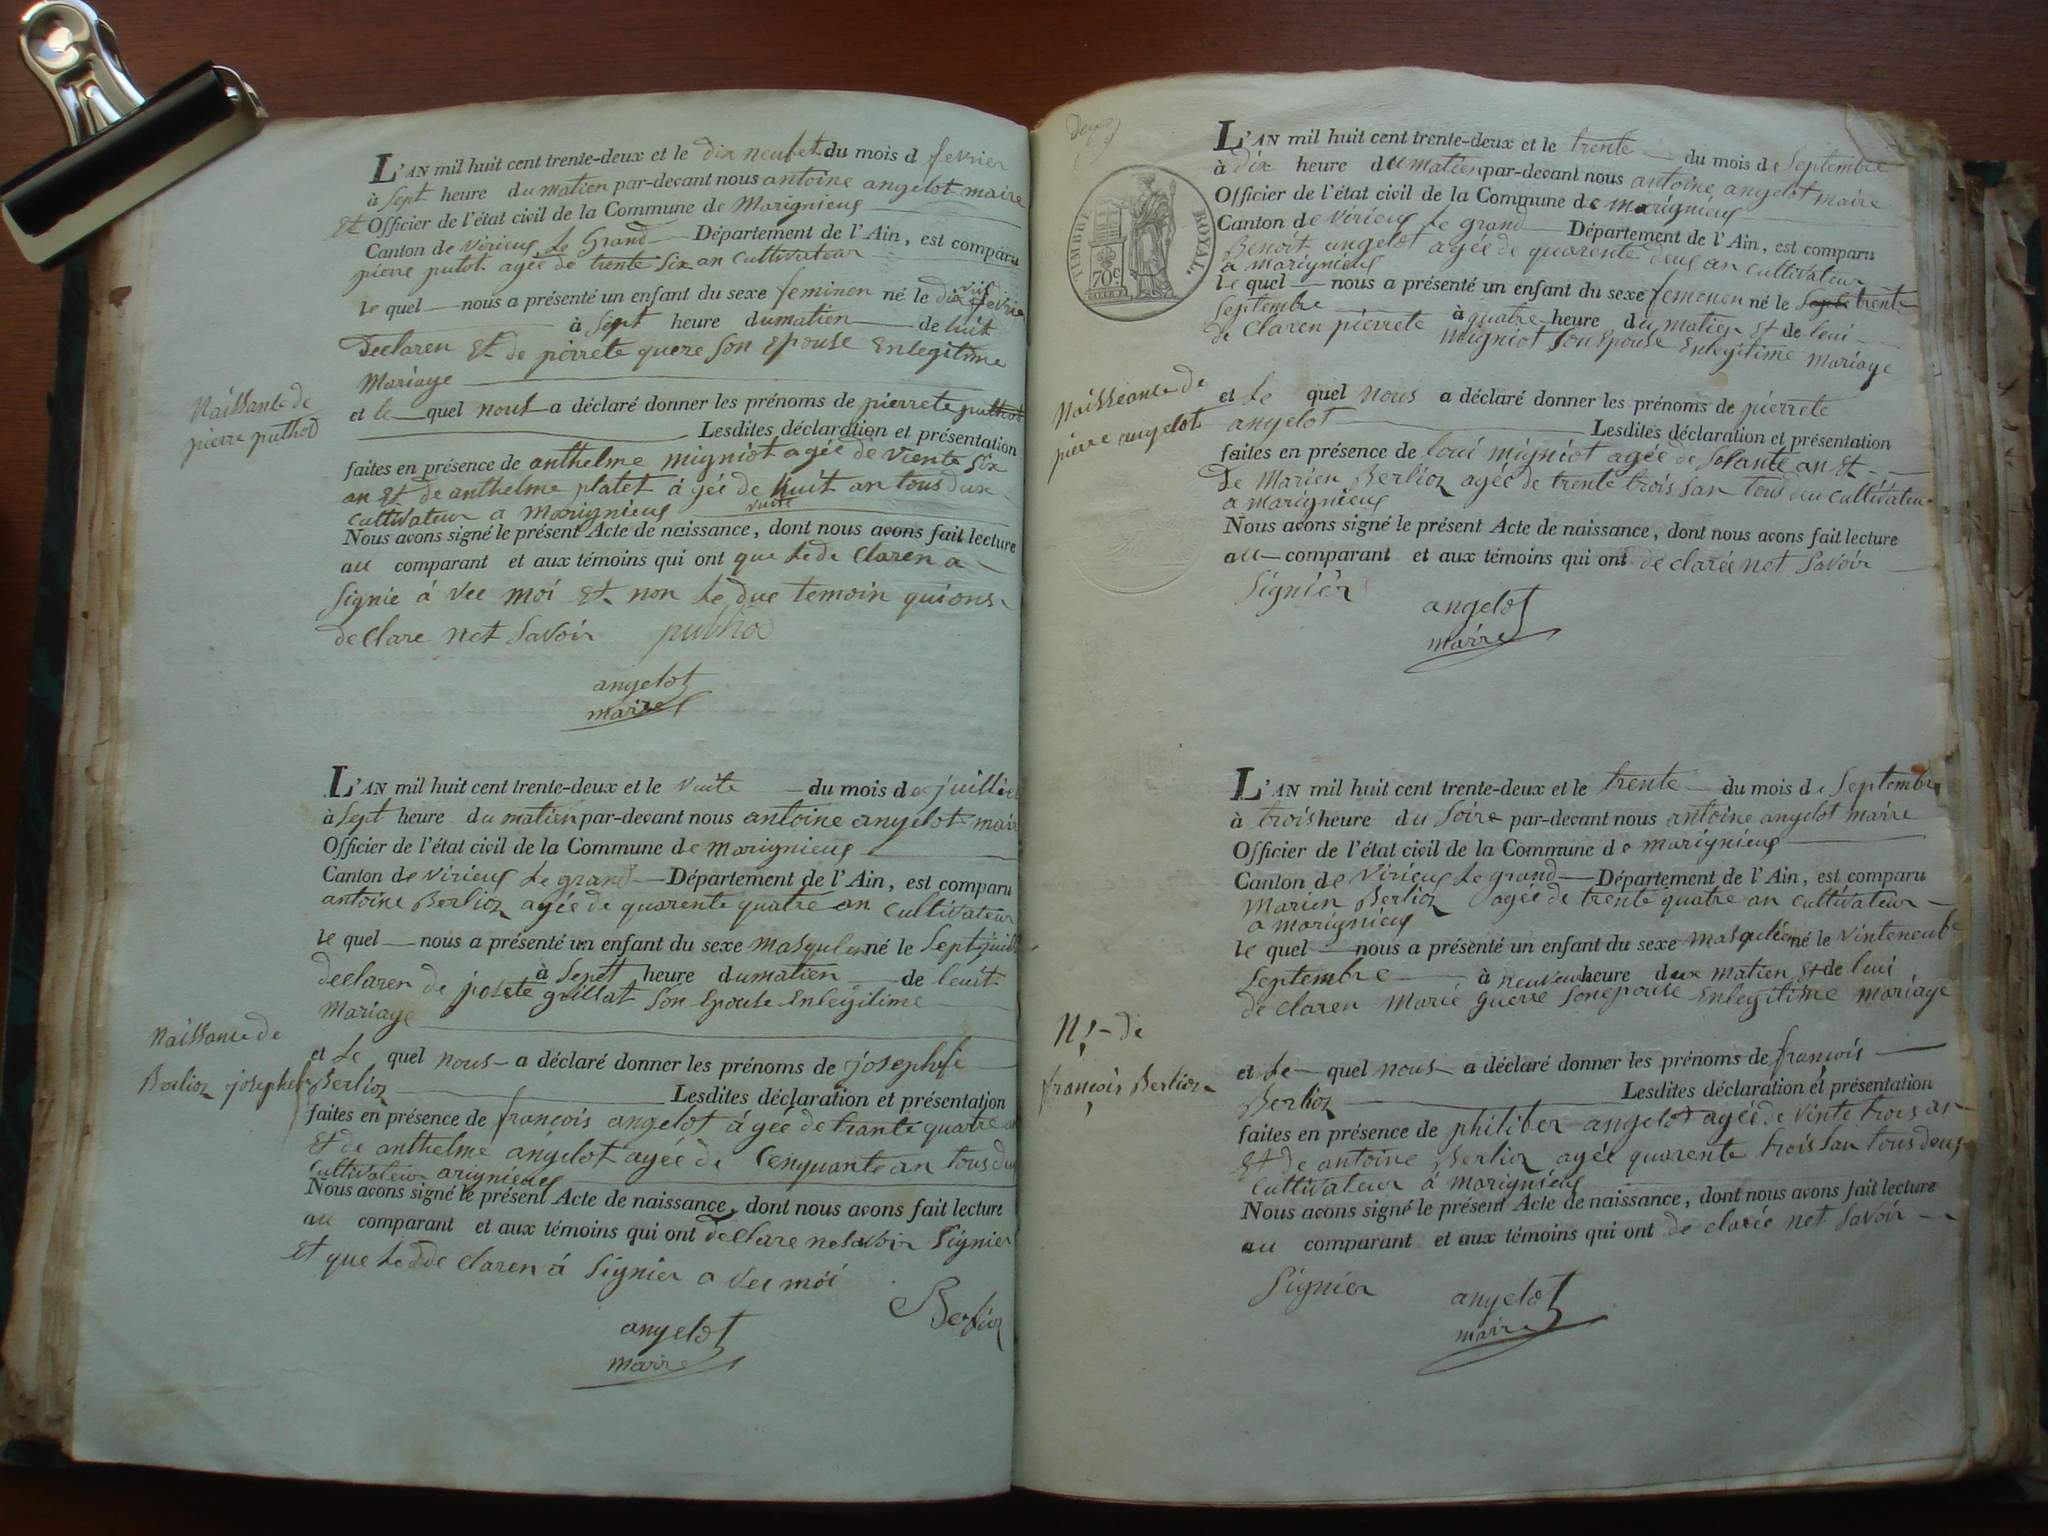 L'AN mil huit cent trente-deux et le dix neufet du mois d fevrier
à Sept heure du matien par-devant nous antoine angelot maire
Et Officier de l'état civil de la Commune de Marignieus
Canton de virieus Le Grand Département de l'Ain, est comparu
pierre putot agée de trente Six an Cultivateur
le quel nous a présenté un enfant du sexe feminen né le dix vit fevrier
à Sept heure du matien de luit
Declaren Et de pierrete quere Son Epouse Enlegitime
Mariage
et le quel nous a déclaré donner les prénoms de pierrete puthod
Lesdites déclaration et présentation
faites en présence de anthelme migniot agée de viente Six
an Et de anthelme platet àgée de huit an tous dux
vuite
Cultivateur a Marignieus
Nous avons signé le présent Acte de naissance, dont nous avons fait lecture
au comparant et aux témoins qui ont que Le de Claren a
Signie à vec moi Et non Le due temoin qui ons
declare net Savoir puthod
angelot
maire
Naissante de
pierre puthod
L'AN mil huit cent trente-deux et le vuite du mois de juillie
à Sept heure du matien par-devant nous antoine angelot mair
Officier de l'état civil de la Commune de Marignieus
Canton de virieus Le grand Département de l'Ain, est comparu
antoine Berlioz agée de quarente quatre an Cultivateur
le quel nous a présenté un enfant du sexe masqulen né le Sept juill
à Sepet heure du matien de leuit
declaren de josete grillat Son Epouse Enlegitime
Mariage
et Le quel nous a déclaré donner les prénoms de josephe
Berlioz Lesdites déclaration et présentation
faites en présence de françois angelot àgée de trante quatre an
Et de anthelme angelot agée de Cenquante an tous du
Cultivateur arignieus
Nous avons signé le présent Acte de naissance, dont nous avons fait lecture
au comparant et aux témoins qui ont declare ne Savoir Signier
Et que Le de Claren à Signier a vec moi
Berlioz
angelot
maire
Naissante de
Berlioz josephe
TIMBRE ROYAL.
70c.
L'AN mil huit cent trente-deux et le trente du mois de Septembre
à dix heure du matien par-devant nous antoine angelot maire
Officier de l'état civil de la Commune de marignieus
Canton de virieus Le grand Département de l'Ain, est comparu
Benoit angelot agée de quarente deus an cultivateur
a marignieus
le quel nous a présenté un enfant du sexe femenen né le trente
Septembre à quatre heure du matien Et de leui
de Claren pierrete Migniot Son Epouse Enlegitime mariage
et Le quel nous a déclaré donner les prénoms de pierrete
angelot Lesdites déclaration et présentation
faites en présence de Loui migniot agée de Solante an Et
De Marien Berlioz agée de trente trois San tous deu cultivateu
a marignieus
Nous avons signé le présent Acte de naissance, dont nous avons fait lecture
au comparant et aux témoins qui ont de clarée net Savoir
Signièr
angelot
maire
Naisseante de
pierre angelot
L'AN mil huit cent trente-deux et le trente du mois de Septembre
à trois heure du Soire par-devant nous antoine angelot maire
Officier de l'état civil de la Commune de marignieus
Canton de virieus Le grand Département de l'Ain, est comparu
Marien Berlioz agée de trente quatre an cultivateur
a marignieus
le quel nous a présenté un enfant du sexe masqulien né le vinteneube
Septembre à neuveur heure dux matien Et de leui
de Claren Marie guere Son epouse Enlegitime mariage
et Le quel nous a déclaré donner les prénoms de françois
Berlioz Lesdites déclaration et présentation
faites en présence de philiber angelot agée de vinte trois an
Et de antoine Berlioz agée quarente trois San tous deus
Cultivateur à Marignieus
Nous avons signé le présent Acte de naissance, dont nous avons fait lecture
au comparant et aux témoins qui ont de clarée net Savoir
Signier
angelot
maire
N. de
françois Berlioz